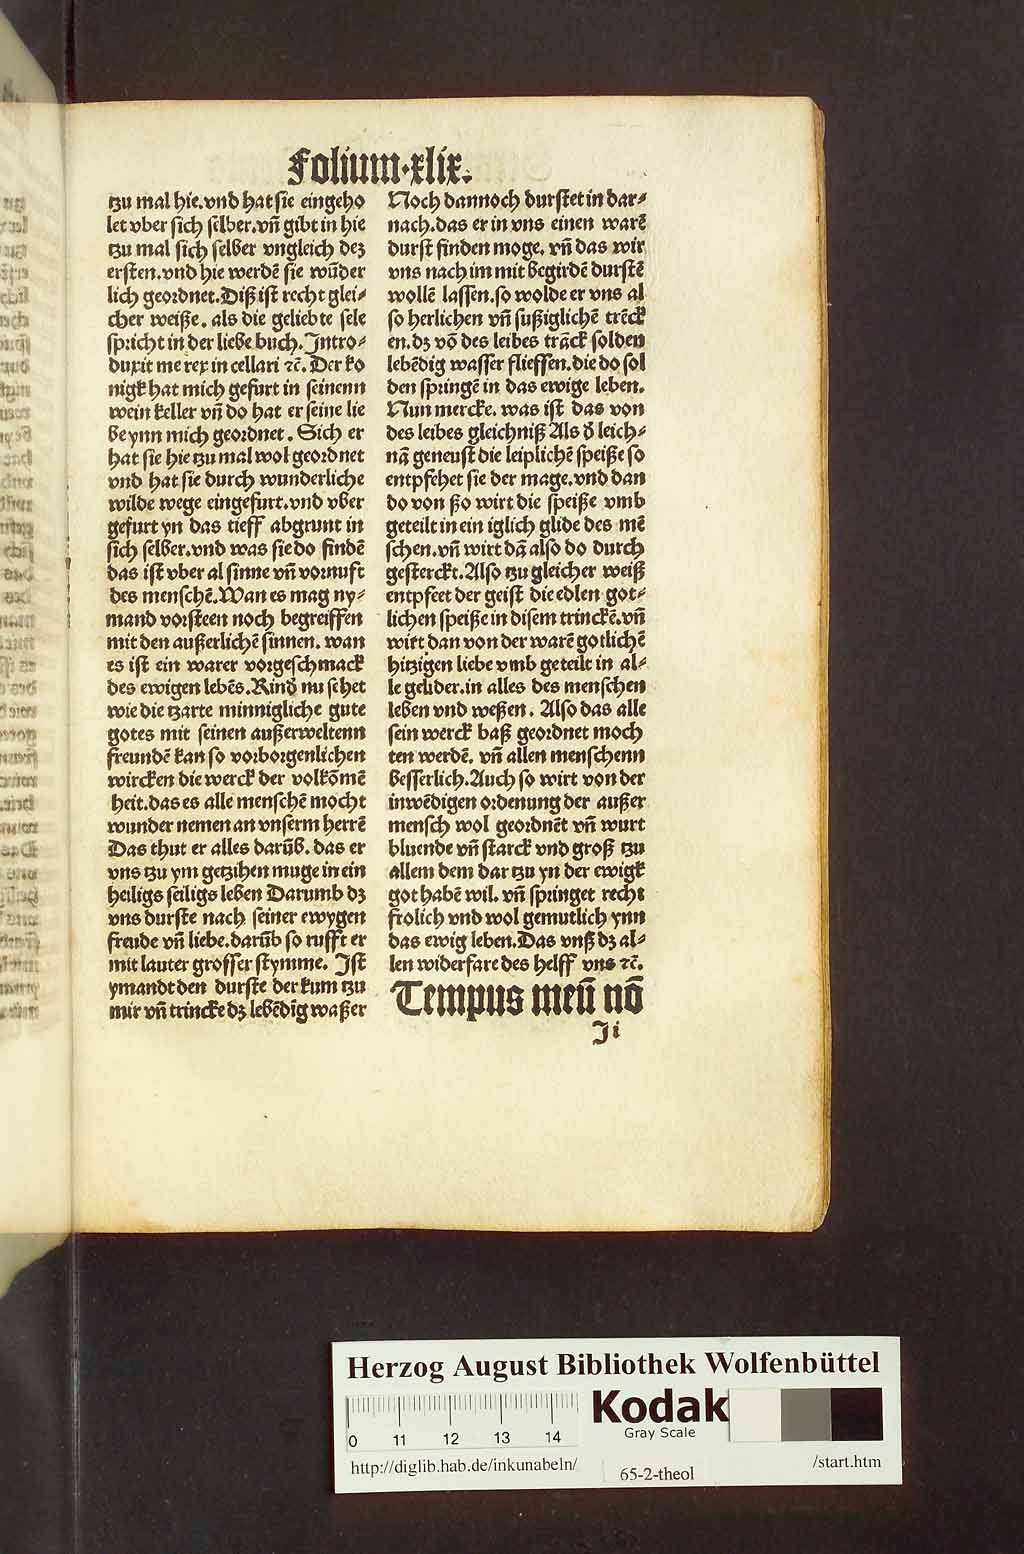 Folium·xlix.
tzu mal hie.vnd hat sie eingeho
let vber sich selber.vn̄ gibt in hie
tzu mal sich selber vngleich dez
ersten.vnd hie werdē sie wūder
lich geordnet.Diß ist recht glei⸗
cher weiße. als die geliebte sele
spricht in der liebe buch. Intro⸗
duxit me rex in cellari ⁊c̄. Der ko
nigk hat mich gefurt in seinenn
wein keller vn̄ do hat er seine lie
be ynn mich geordnet. Sich er
hat sie hie tzu mal wol geordnet
vnd hat sie durch wunderliche
wilde wege eingefurt.vnd vber
gefurt yn das tieff abgrunt in
sich selber.vnd was sie do findē
das ist vber al sinne vn̄ vornuft
des menschē.Wan es mag ny⸗
mand vorsteen noch begreiffen
mit den außerlichē sinnen. wan
es ist ein warer vorgeschmack
des ewigen lebēs.Rind̄ nu sehet
wie die tzarte minnigliche gute
gotes mit seinen außerweltenn
freundē kan so vorborgenlichen
wircken die werck der volkōmē
heit.das es alle menschē mocht
wunder nemen an vnserm herrē
Das thut er alles darūb. das er
vns tzu ym getzihen muge in ein
heiligs seiligs leben Darumb dz
vns durste nach seiner ewygen
freude vn̄ liebe.darūb so rufft er
mit lauter grosser stymme. Ist
ymandt den durste der kum tzu
mir vn̄ trincke dz lebēdig waßer
Noch dannoch durstet in dar⸗
nach.das er in vns einen warē
durst finden moge. vn̄ das wir
vns nach im mit begirdē durstē
wollē lassen.so wolde er vns al
so herlichen vn̄ sußiglichē trēck
en.dz vō des leibes trāck solden
lebēdig wasser fliessen.die do sol
den springē in das ewige leben.
Nun mercke. was ist das von
des leibes gleichniß Als d̄ leich⸗
nā geneust die leiplichē speiße so
entpfehet sie der mage.vnd dan
do von ßo wirt die speiße vmb
geteilt in ein iglich glide des mē
schen.vn̄ wirt dā also do durch
gesterckt.Also tzu gleicher weiß
entpfeet der geist die edlen got⸗
lichen speiße in disem trinckē.vn̄
wirt dan von der warē gotlichē
hitzigen liebe vmb geteilt in al⸗
le gelider.in alles des menschen
leben vnd weßen. Also das alle
sein werck baß geordnet moch
ten werdē. vn̄ allen menschenn
besserlich.Auch so wirt von der
inwēdigen ordenung der außer
mensch wol geordnēt vn̄ wurt
bluende vn̄ starck vnd groß tzu
allem dem dar tzu yn der ewigk
got habē wil. vn̄ springet recht
frolich vnd wol gemutlich ynn
das ewig leben.Das vnß dz al⸗
len widerfare des helff vns ⁊c̄.
Tempus meū nō
Ji
Herzog August Bibliothek Wolfenbüttel
Kodak
Gray Scale
0 11 12 13 14
http://diglib.hab.de/inkunabeln/
65-2-theol
/start.htm